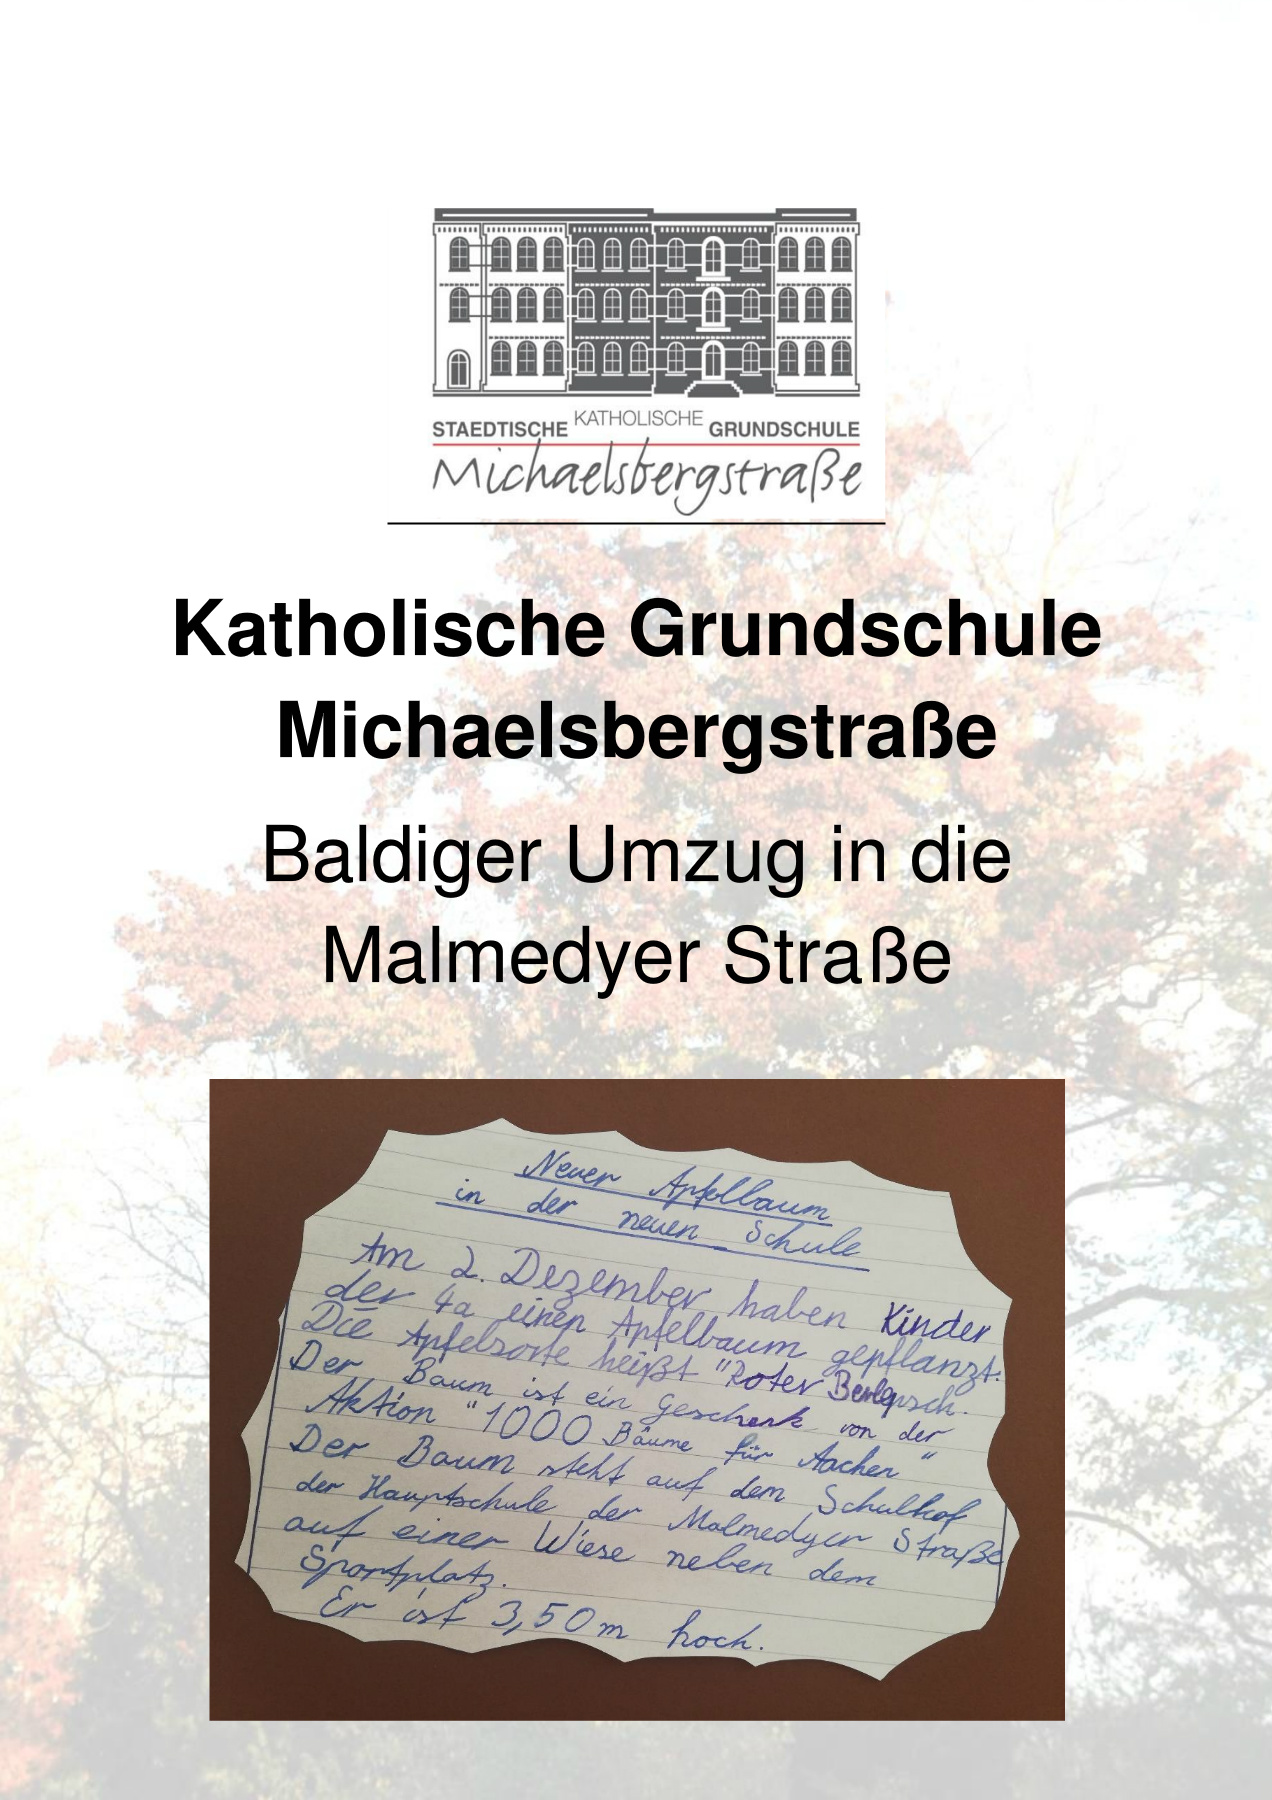 STAEDTISCHE KATHOLISCHE GRUNDSCHULE
Michaelsbergstraße
Katholische Grundschule
Michaelsbergstraße
Baldiger Umzug in die
Malmedyer Straße
Neuer Apfelbaum
in der neuen Schule
Am 2. Dezember haben Kinder
der 4a einen Apfelbaum gepflanzt.
Die Apfelsorte heißt "Roter Berlepsch.
Der Baum ist ein Geschenk von der
Aktion "1000 Bäume für Aachen"
Der Baum steht auf dem Schulhof
der Hauptschule der Malmedyer Straße
auf einer Wiese neben dem
Sportplatz.
Er ist 3,50m hoch.